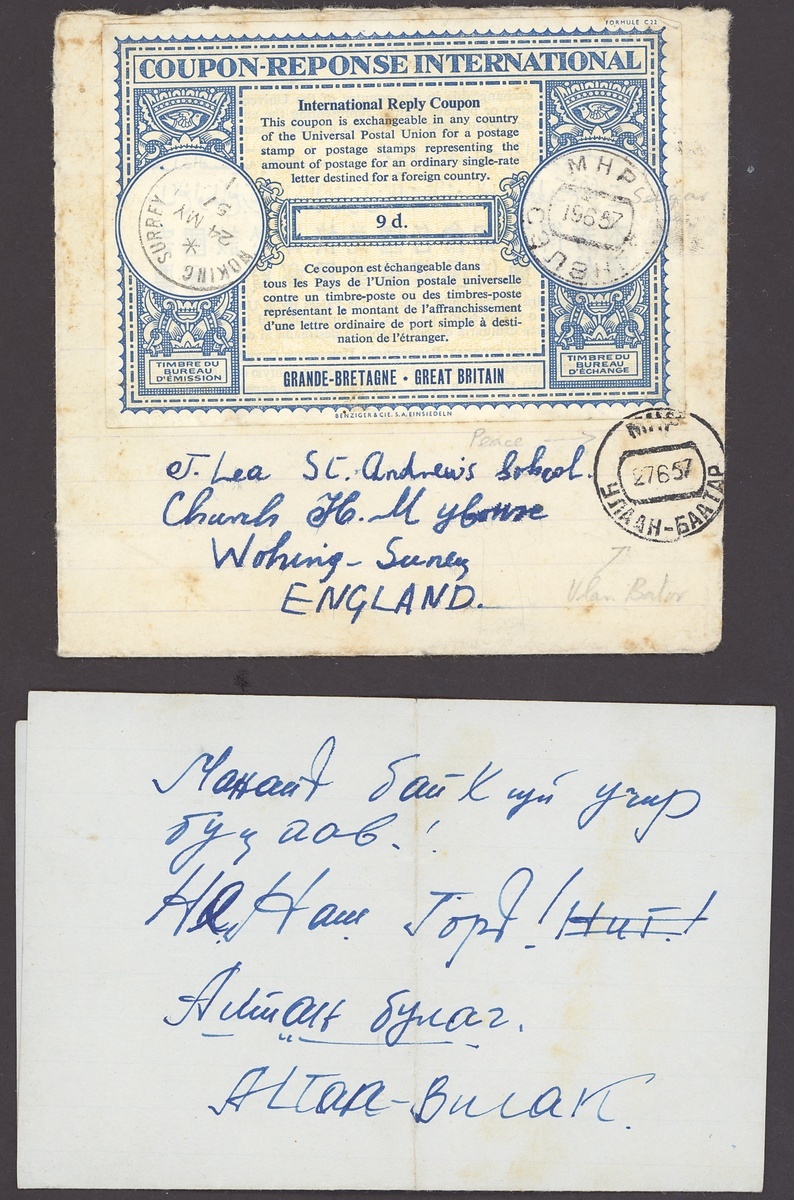 FORMULE C22
COUPON-REPONSE INTERNATIONAL
International Reply Coupon
This coupon is exchangeable in any country
of the Universal Postal Union for a postage
stamp or postage stamps representing the
amount of postage for an ordinary single-rate
letter destined for a foreign country.
9 d.
Ce coupon est échangeable dans
tous les Pays de l'Union postale universelle
contre un timbre-poste ou des timbres-poste
représentant le montant de l'affranchissement
d'une lettre ordinaire de port simple à desti-
nation de l'étranger.
WOKING SURREY
24 MY
57
MHP
19657
TIMBRE DU
BUREAU
D'ÉMISSION
TIMBRE DU
BUREAU
D'ÉCHANGE
GRANDE-BRETAGNE · GREAT BRITAIN
BENZIGER & CIE. S.A. EINSIEDELN
Peace
МНР
27657
УЛААН-БААТАР
J. Lea St. Andrew's School.
Church H. M
Woking - Surrey
ENGLAND.
Ulan Bator
Манайд байхгүй учир
буцаав.!
На, Наш Торд!
Алтан булаг.
Altan-Bulak.